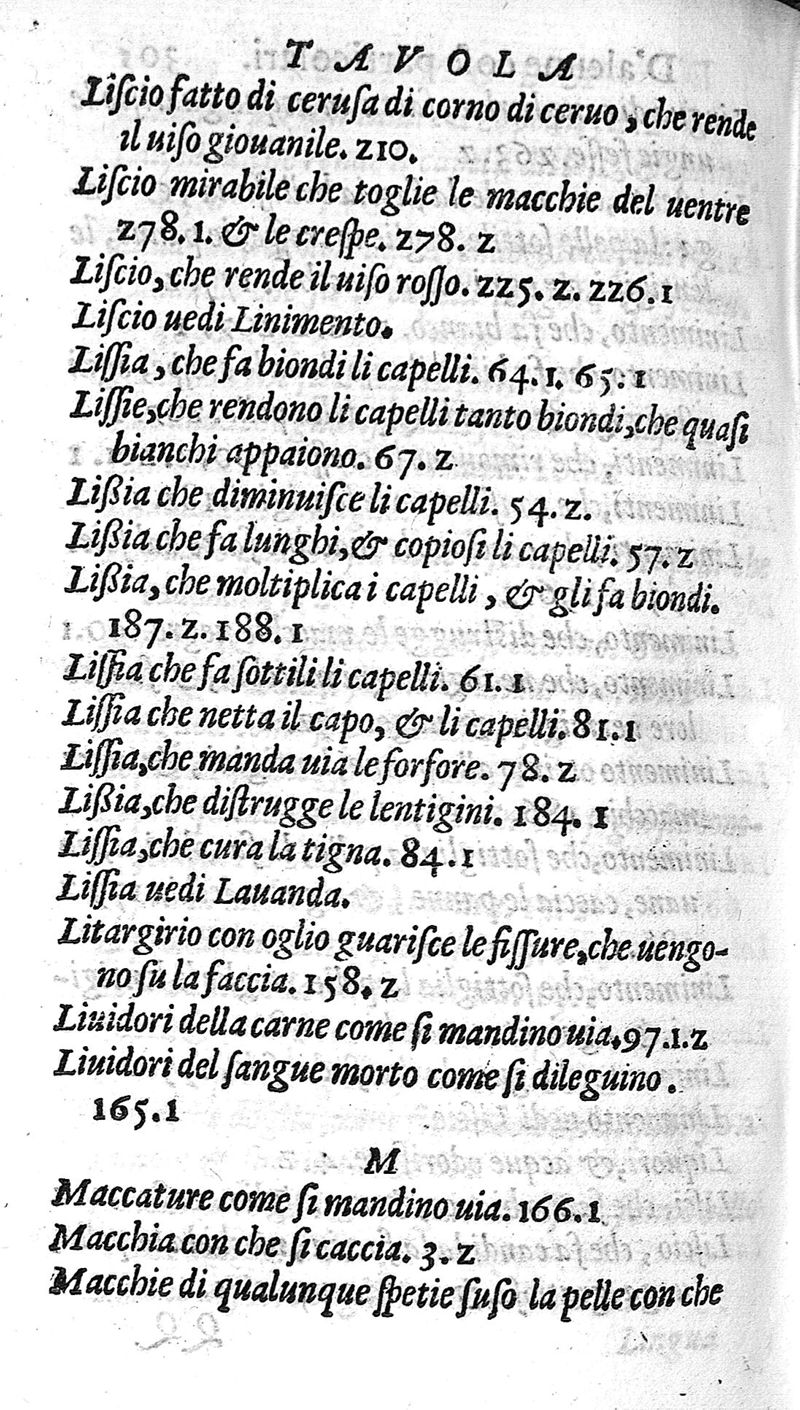 TAVOLA
Liſcio fatto di ceruſa di corno di ceruo, che rende
il uiſo giouanile. 210.
Liſcio mirabile che toglie le macchie del uentre
278. 1. & le creſpe. 278. 2
Liſcio, che rende il uiſo roſſo. 225. 2. 226. 1
Liſcio uedi Linimento.
Liſſia, che fa biondi li capelli. 64. 1. 65. 1
Liſſie, che rendono li capelli tanto biondi, che quaſi
bianchi appaiono. 67. 2
Lißia che diminuiſce li capelli. 54. 2.
Lißia che fa lunghi, & copioſi li capelli. 57. 2
Lißia, che moltiplica i capelli, & gli fa biondi.
187. 2. 188. 1
Liſſia che fa ſottili li capelli. 61. 1
Liſſia che netta il capo, & li capelli. 81. 1
Liſſia, che manda uia le forfore. 78. 2
Lißia, che diſtrugge le lentigini. 184. 1
Liſſia, che cura la tigna. 84. 1
Liſſia uedi Lauanda.
Litargirio con oglio guariſce le fiſſure, che uengo-
no ſu la faccia. 158. 2
Liuidori della carne come ſi mandino uia. 97. 1. 2
Liuidori del ſangue morto come ſi dileguino.
165. 1
M
Maccature come ſi mandino uia. 166. 1
Macchia con che ſi caccia. 3. 2
Macchie di qualunque ſpetie ſuſo la pelle con che